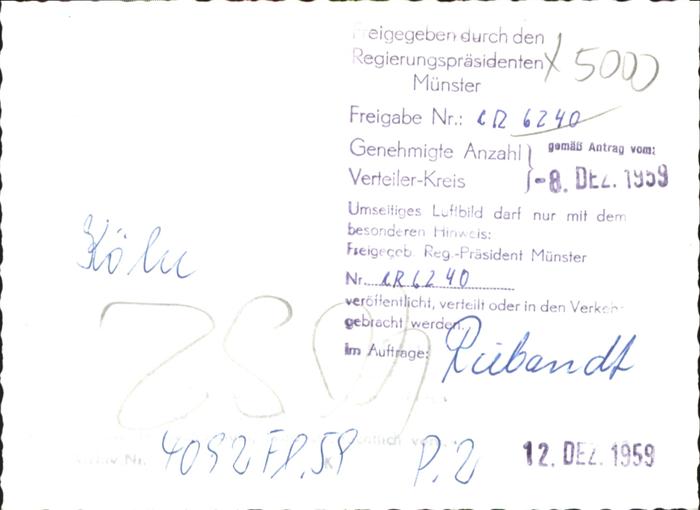 Freigegeben durch den
Regierungspräsidenten
Münster
5000
Freigabe Nr.: CR 6240
Genehmigte Anzahl
Verteiler-Kreis
gemäß Antrag vom:
-8. DEZ. 1959
Umseitiges Luftbild darf nur mit dem
besonderen Hinweis:
Freigegeb. Reg.-Präsident Münster
Nr. CR 6240
veröffentlicht, verteilt oder in den Verkehr
gebracht werden.
Im Auftrage: Riebandt
Köln
4092 Fl. 59 P. 2
12. DEZ. 1959